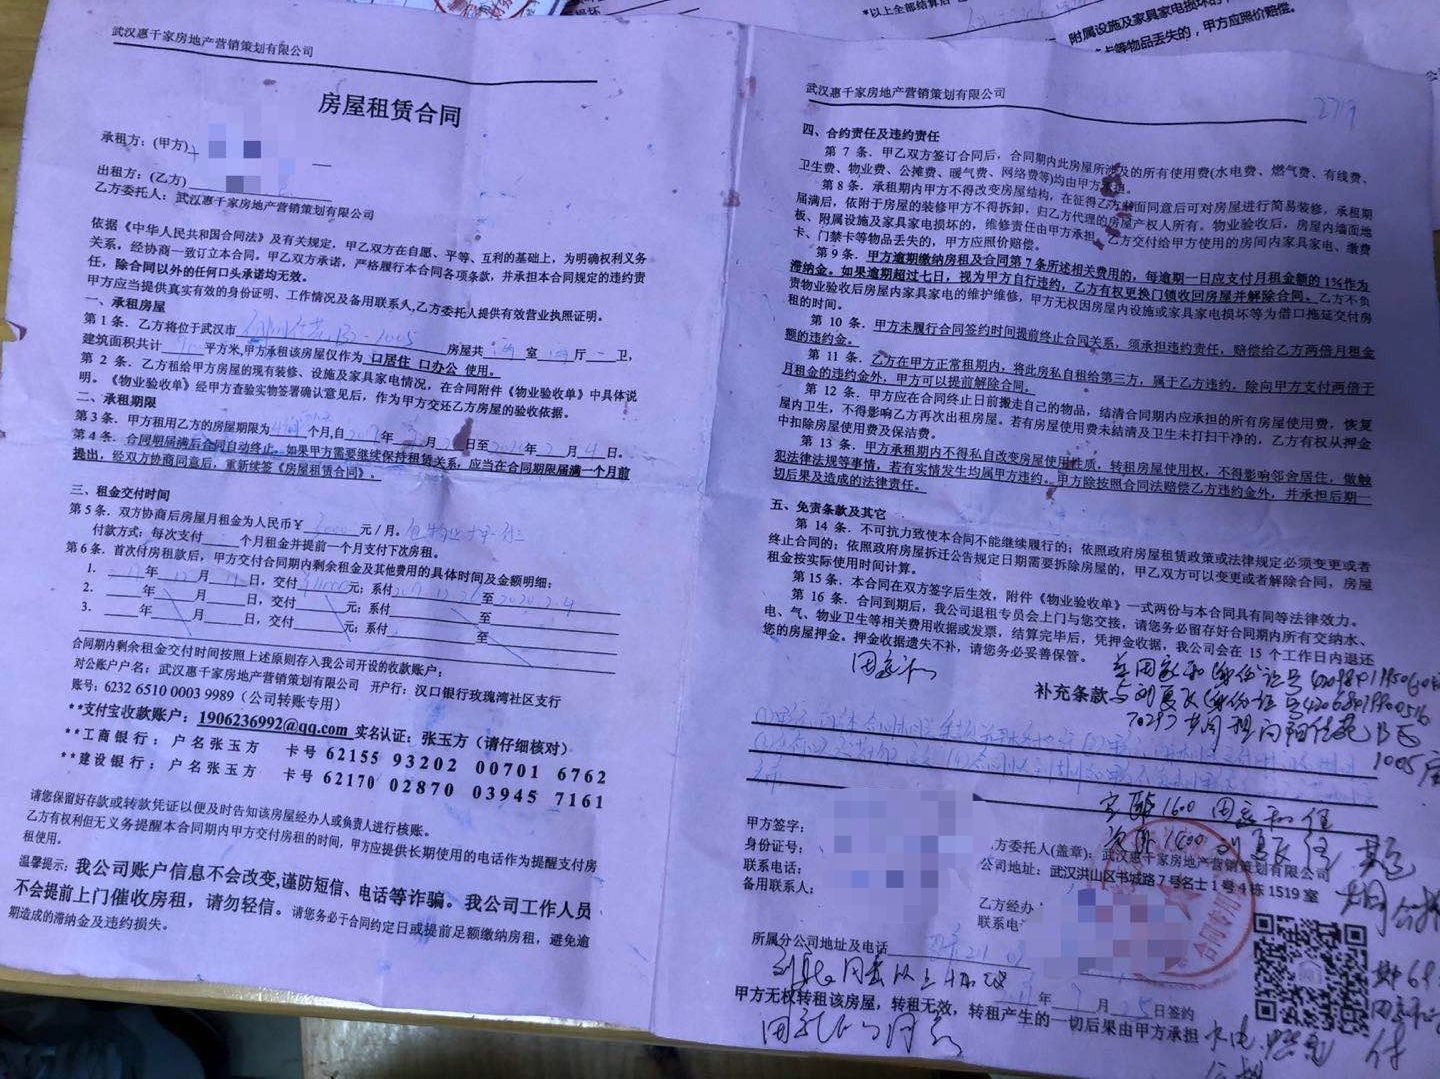 *以上全部结算后
附属设施及家具家电损坏的
卡等物品丢失的，甲方应照价赔偿。
武汉惠千家房地产营销策划有限公司
房屋租赁合同
承租方：(甲方)
出租方：(乙方)
乙方委托人：武汉惠千家房地产营销策划有限公司
依据《中华人民共和国合同法》及有关规定，甲乙双方在自愿、平等、互利的基础上，为明确权利义务
关系，经协商一致订立本合同。甲乙双方承诺，严格履行本合同各项条款，并承担本合同规定的违约责
任，除合同以外的任何口头承诺均无效。
甲方应当提供真实有效的身份证明、工作情况及备用联系人,乙方委托人提供有效营业执照证明。
一、承租房屋
第 1 条．乙方将位于武汉市 1005 房屋共 室 厅 卫，
建筑面积共计 平方米,甲方承租该房屋仅作为 口居住 口办公 使用。
第 2 条．乙方租给甲方房屋的现有装修、设施及家具家电情况，在合同附件《物业验收单》中具体说
明。《物业验收单》经甲方查验实物签署确认意见后，作为甲方交还乙方房屋的验收依据。
二、承租期限
第 3 条．甲方租用乙方的房屋期限为 个月,自 年 月 日至 年 2 月 4 日。
第 4 条．合同期届满后合同自动终止。如果甲方需要继续保持租赁关系，应当在合同期限届满一个月前
提出，经双方协商同意后，重新续签《房屋租赁合同》。
三、租金交付时间
第 5 条．双方协商后房屋月租金为人民币￥ 元 / 月。
付款方式：每次支付 个月租金并提前一个月支付下次房租。
第 6 条．首次付房租款后，甲方交付合同期内剩余租金及其他费用的具体时间及金额明细：
1. 年 月 日，交付 元；系付 至
2. 年 月 日，交付 元；系付 至
3. 年 月 日，交付 元；系付 至
合同期内剩余租金交付时间按照上述原则存入我公司开设的收款账户：
对公账户户名：武汉惠千家房地产营销策划有限公司 开户行：汉口银行玫瑰湾社区支行
账号：6232 6510 0003 9989（公司转账专用）
**支付宝收款账户：1906236992@qq.com 实名认证：张玉方（请仔细核对）
**工商银行：户名张玉方 卡号 62155 93202 00701 6762
**建设银行：户名张玉方 卡号 62170 02870 03945 7161
请您保留好存款或转款凭证以便及时告知该房屋经办人或负责人进行核账。
乙方有权利但无义务提醒本合同期内甲方交付房租的时间，甲方应提供长期使用的电话作为提醒支付房
租使用。
温馨提示：我公司账户信息不会改变,谨防短信、电话等诈骗。我公司工作人员
不会提前上门催收房租，请勿轻信。请您务必于合同约定日或提前足额缴纳房租，避免逾
期造成的滞纳金及违约损失。
武汉惠千家房地产营销策划有限公司
2719
四、合约责任及违约责任
第 7 条．甲乙双方签订合同后，合同期内此房屋所涉及的所有使用费(水电费、燃气费、有线费、
卫生费、物业费、公摊费、暖气费、网络费等)均由甲方承担。
第 8 条．承租期内甲方不得改变房屋结构，在征得乙方书面同意后可对房屋进行简易装修，承租期
届满后，依附于房屋的装修甲方不得拆卸，归乙方代理的房屋产权人所有。物业验收后，房屋内墙面地
板、附属设施及家具家电损坏的，维修责任由甲方承担。乙方交付给甲方使用的房间内家具家电、缴费
卡、门禁卡等物品丢失的，甲方应照价赔偿。
第 9 条．甲方逾期缴纳房租及合同第 7 条所述相关费用的，每逾期一日应支付月租金额的 1%作为
滞纳金。如果逾期超过七日，视为甲方自行违约，乙方有权更换门锁收回房屋并解除合同。乙方不负
责物业验收后房屋内家具家电的维护维修，甲方无权因房屋内设施或家具家电损坏等为借口拖延交付房
租的时间。
第 10 条．甲方未履行合同签约时间提前终止合同关系，须承担违约责任，赔偿给乙方两倍月租金
额的违约金。
第 11 条．乙方在甲方正常租期内，将此房私自租给第三方，属于乙方违约，除向甲方支付两倍于
月租金的违约金外，甲方可以提前解除合同。
第 12 条．甲方应在合同终止日前搬走自己的物品，结清合同期内应承担的所有房屋使用费，恢复
屋内卫生，不得影响乙方再次出租房屋。若有房屋使用费未结清及卫生未打扫干净的，乙方有权从押金
中扣除房屋使用费及保洁费。
第 13 条．甲方承租期内不得私自改变房屋使用性质，转租房屋使用权，不得影响邻舍居住，做触
犯法律法规等事情，若有实情发生均属甲方违约。甲方除按照合同法赔偿乙方违约金外，并承担后期一
切后果及造成的法律责任。
五、免责条款及其它
第 14 条．不可抗力致使本合同不能继续履行的；依照政府房屋租赁政策或法律规定必须变更或者
终止合同的；依照政府房屋拆迁公告规定日期需要拆除房屋的，甲乙双方可以变更或者解除合同，房屋
租金按实际使用时间计算。
第 15 条．本合同在双方签字后生效，附件《物业验收单》一式两份与本合同具有同等法律效力。
第 16 条．合同到期后，我公司退租专员会上门与您交接，请您务必留存好合同期内所有交纳水、
电、气、物业卫生等相关费用收据或发票，结算完毕后，凭押金收据，我公司会在 15 个工作日内退还
您的房屋押金。押金收据遗失不补，请您务必妥善保管。
补充条款
1005
甲方签字：
身份证号：
联系电话：
备用联系人：
方委托人(盖章)：武汉惠千家房地产营销策划有限公司
公司地址：武汉洪山区书城路 7 号名士 1 号 4 栋 1519 室
乙方经办
联系电
所属分公司地址及电话
年 9 月 25 日签约
甲方无权转租该房屋，转租无效，转租产生的一切后果由甲方承担